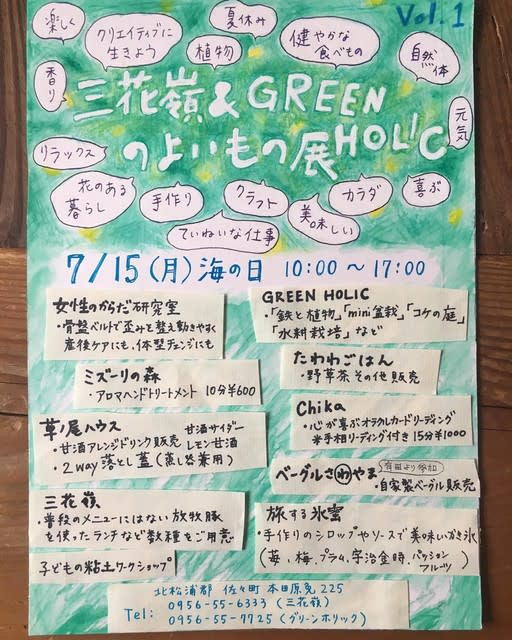 Vol.1
楽しく
クリエイティブに
生きよう
夏休み
植物
健やかな
食べもの
自然
体
香り
三花嶺&GREEN
HOLIC
のよいもの展
元気
リラックス
花のある
暮らし
手作り
クラフト
カラダ
喜ぶ
美味しい
ていねいな仕事
7/15(月)海の日 10:00~17:00
女性のからだ研究室
・骨盤ベルトで歪みと整え動きやすく
産後ケアにも、体型チェンジにも
GREEN HOLIC
・「鉄と植物」「mini盆栽」「コケの庭」
「水耕栽培」など
ミズーリの森
・アロマハンドトリートメント 10分¥600
たわわごはん
・野草茶その他販売
草ノ尾ハウス
・甘酒アレンジドリンク販売
甘酒サイダー
レモン甘酒
・2way落とし蓋(蒸し器兼用)
Chika
・心が喜ぶオラクルカードリーディング
※手相リーディング付き 15分¥1000
ベーグルさわやま
有田より参加
・自家製ベーグル販売
三花嶺
・普段のメニューにはない放牧豚
を使ったランチなど数種をご用意
旅する氷雪
・手作りのシロップやソースで美味しいかき氷
(苺、梅、プラム、宇治金時、パッション
フルーツ)
子どもの粘土ワークショップ
北松浦郡 佐々町 本田原免225
Tel: 0956-55-6333(三花嶺)
0956-55-7725(グリーンホリック)